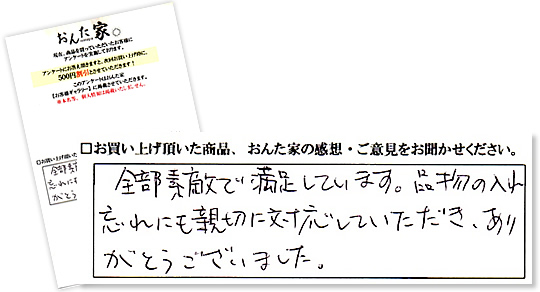 おんた家
現在、商品を買っていただいたお客様に
アンケートを実施しております。
アンケートにお答え頂きますと、次回お買い上げ時に、
500円割引とさせていただきます!
このアンケートはおんた家
【お客様ギャラリー】に掲載させていただきます。
※お名前、個人情報は掲載いたしません。
□お買い上げ頂いた
全部素
忘れに
がとう
□お買い上げ頂いた商品、おんた家の感想・ご意見をお聞かせください。
全部素敵で満足しています。品物の入れ
忘れにも親切に対応していただき、あり
がとうございました。